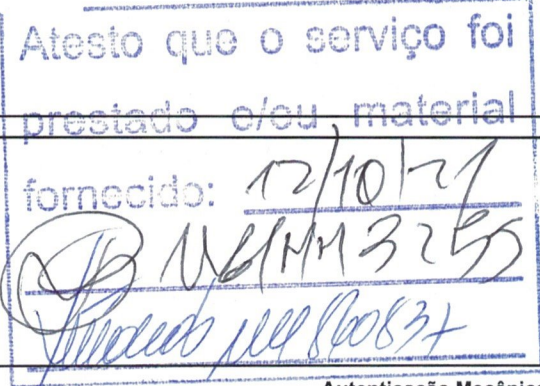 Atesto que o serviço foi
prestado e/ou material
fornecido: 12/10/21
3255
860837
Autenticação Mecânic